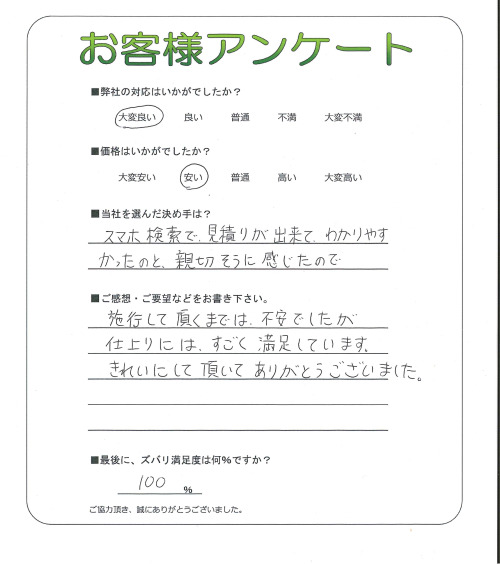 お客様アンケート
■弊社の対応はいかがでしたか？
大変良い 良い 普通 不満 大変不満
■価格はいかがでしたか？
大変安い 安い 普通 高い 大変高い
■当社を選んだ決め手は？
スマホ検索で、見積りが出来て、わかりやす
かったのと、親切そうに感じたので
■ご感想・ご要望などをお書き下さい。
施行して頂くまでは、不安でしたが
仕上りには、すごく満足しています。
きれいにして頂いてありがとうございました。
■最後に、ズバリ満足度は何%ですか？
100 %
ご協力頂き、誠にありがとうございました。